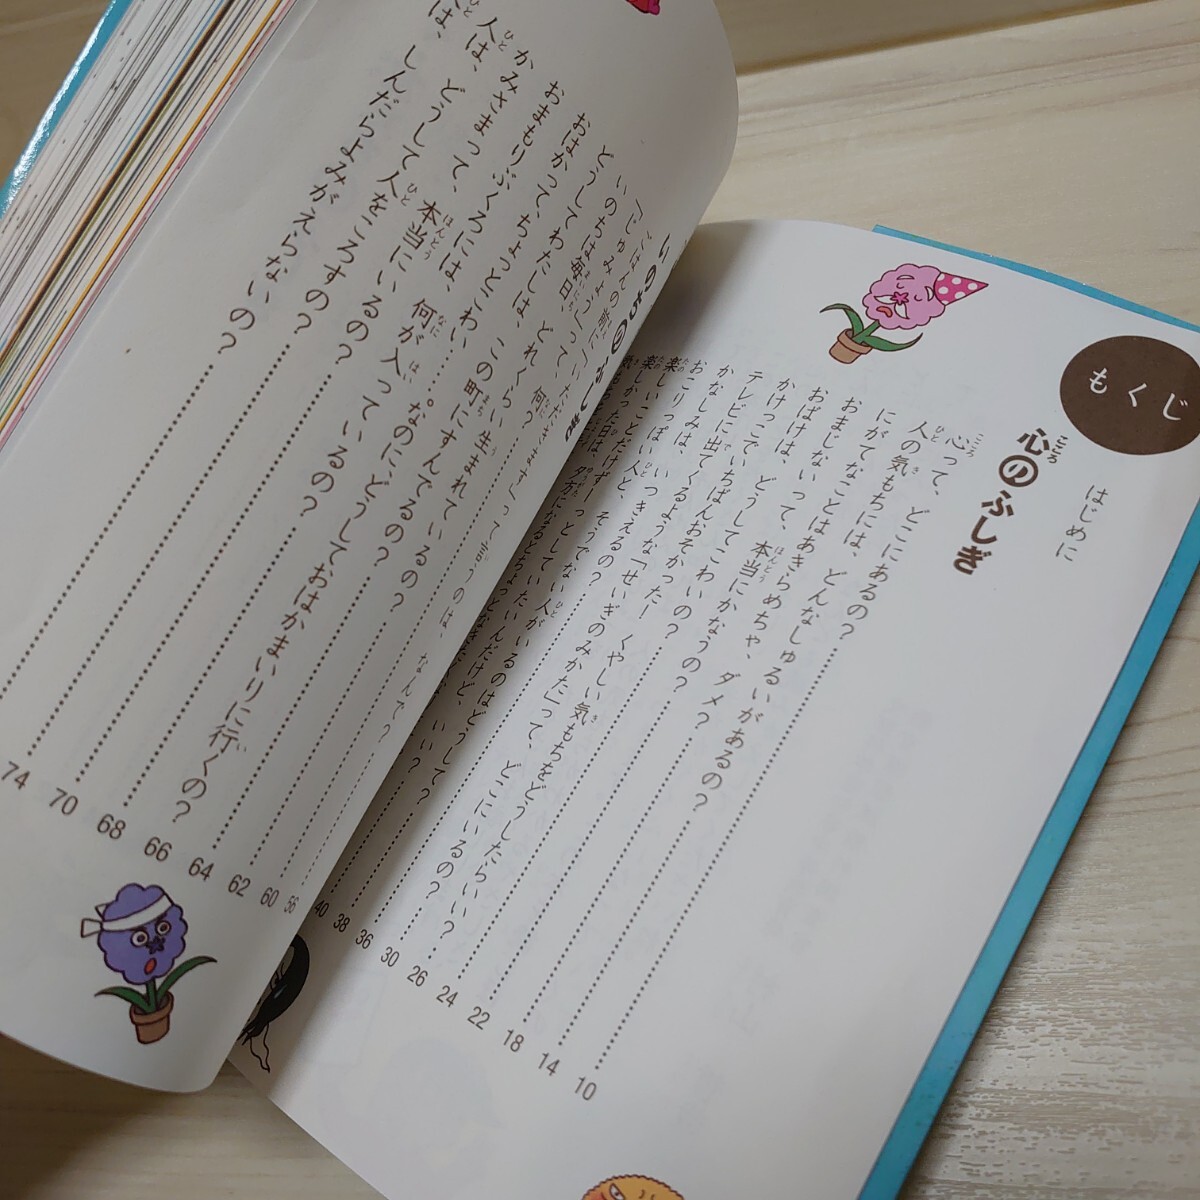 もくじ
はじめに
心のふしぎ
心って、どこにあるの?
10
人の気もちには、どんなしゅるいがあるの?
14
にがてなことはあきらめちゃ、ダメ?
18
おまじないって、本当にかなうの?
22
おばけは、どうしてこわいの?
24
かけっこでいちばんおそかった! くやしい気もちをどうしたらいい?
26
テレビに出てくるような「せいぎのみかた」って、どこにいるの?
30
かなしみは、いつきえるの?
36
おこりっぽい人と、そうでない人がいるのはどうして?
38
楽しいことだけずーっとしていたいんだけど、いい?
40
いのちのふしぎ
ごはんの前に「いただきます」って言うのは、なんで?
56
「じゅみょう」って、何?
60
いのちは毎日、どれくらい生まれているの?
62
どうしてわたしは、この町にすんでるの?
64
おはかって、ちょっとこわい…。なのに、どうしておはかまいりに行くの?
66
おまもりぶくろには、何が入っているの?
68
かみさまって、本当にいるの?
70
人は、どうして人をころすの?
74
は、しんだらよみがえらないの?